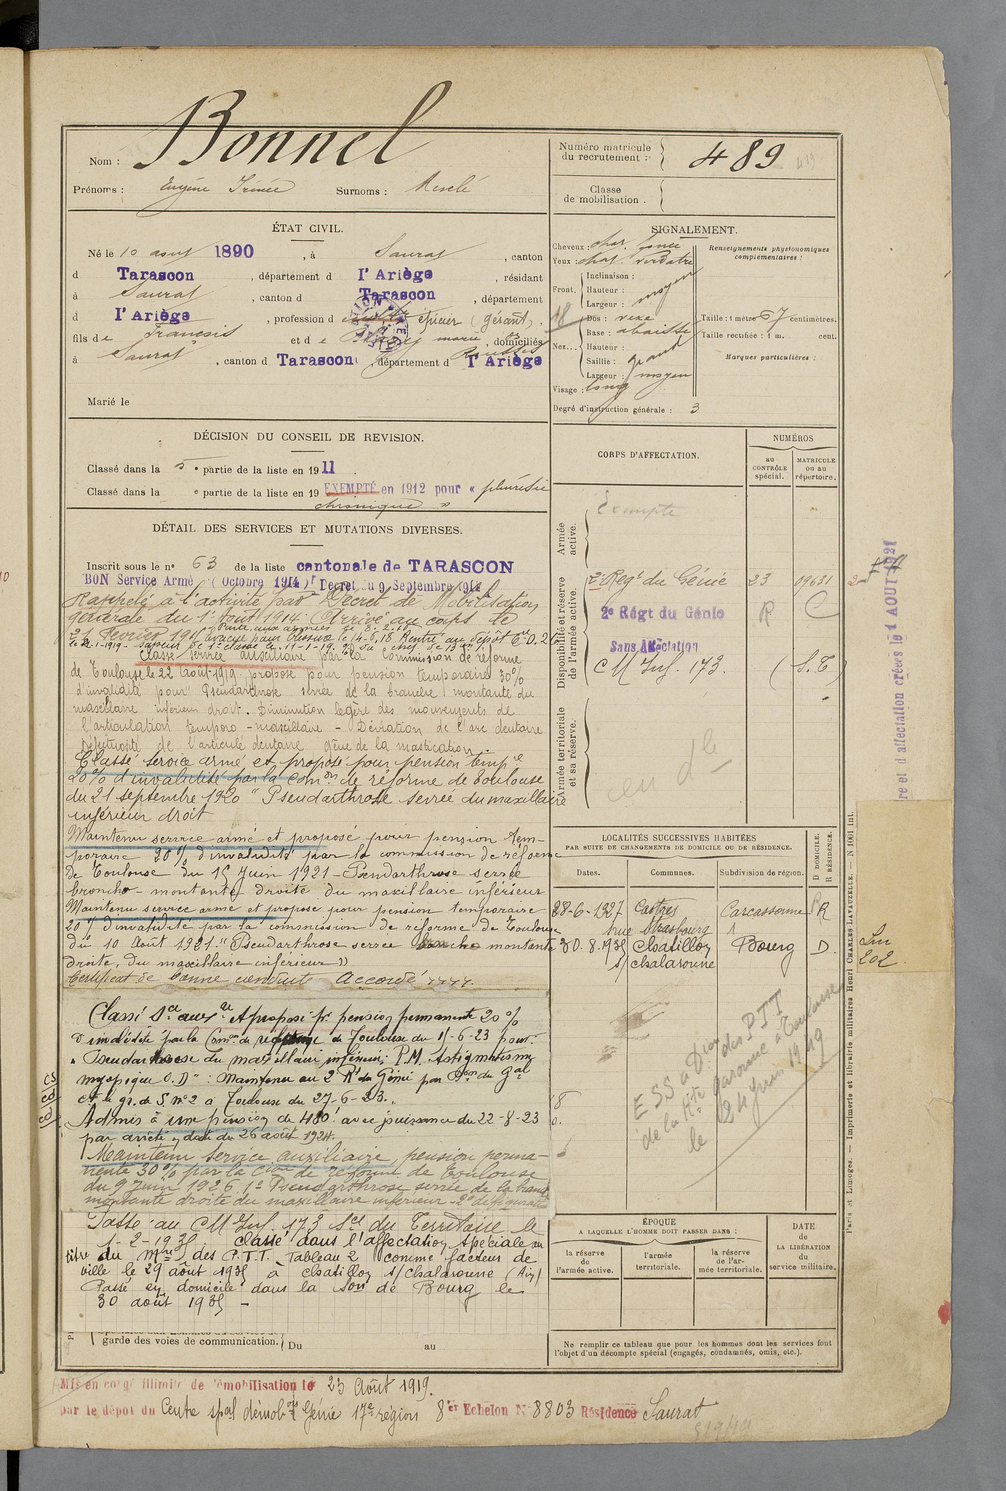 Nom : Bonnel
Prénoms : Eugène Irénée Surnoms :
Numéro matricule du recrutement : 489
Classe de mobilisation :
ÉTAT CIVIL.
Né le 10 aout 1890, à Saurat, canton
d Tarascon, département d l'Ariège, résidant
à Saurat, canton d Tarascon, département
d l'Ariège, profession d épicier (gérant).
fils de François et de , domiciliés
à Saurat, canton d Tarascon, département d l'Ariège
Marié le
DÉCISION DU CONSEIL DE REVISION.
Classé dans la 5e partie de la liste en 1911.
Classé dans la e partie de la liste en 19 EXEMPTÉ en 1912 pour « pleurésie
chronique »
DÉTAIL DES SERVICES ET MUTATIONS DIVERSES.
Inscrit sous le n° 63 de la liste cantonale de TARASCON
BON Service Armé (Octobre 1914) Décret du 9 Septembre 1914
Rappelé à l'activité par Décret de Mobilisation
générale du 1er Aout 1914. Arrivé au corps le
Classé service auxiliaire par la Commission de réforme
de Toulouse le 22 Août 1919, proposé pour pension temporaire 30%
d'invalidité pour Pseudarthrose serrée de la branche montante du
maxillaire inférieur droit. Diminution légère des mouvements de
l'articulation temporo-maxillaire - Déviation de l'arc dentaire
de l'articulé dentaire gêne de la mastication.
Classé service armé et proposé pour pension temp re
20% d'invalidité par la Com on de réforme de Toulouse
du 21 septembre 1920 "Pseudarthrose serrée du maxillaire
inférieur droit
Maintenu service armé et proposé pour pension tem-
poraire 20% d'invalidité par la commission de réforme
de Toulouse du 15 Juin 1921 - Pseudarthrose serrée
broncho-montante droite du maxillaire inférieur
Maintenu service armé et proposé pour pension temporaire
20% d'invalidité par la commission de réforme de Toulouse
du 10 Août 1921. "Pseudarthrose serrée branche montante
droite, du maxillaire inférieur"
Certificat de bonne conduite Accordé
Classé Sce auxre et proposé pr pension permanente 20%
d'invalidité par la Com on de réforme de Toulouse du 1-6-23 pour
"Pseudarthrose du maxillaire inférieur; P.M. Astigmatisme
myopique O.D": Maintenu au 2 Rt du Génie par Don du Gal
Ct le gr. de S. n°2 à Toulouse du 27-6-23.
Admis à une pension de 480f avec jouissance du 22-8-23
par arrêté, daté du 26 août 1924.
Maintenu service auxiliaire, pension perma-
nente 30% par la Com on de réforme de Toulouse
du 9 Juin 1926 1° Pseudarthrose serrée de la branche
montante droite du maxillaire inférieur - 2°
Passé au CM Inf. 173 Sct du Territoire le
1-2-1935. classé dans l'affectation spéciale au
titre du Mtre des P.T.T. Tableau 2 comme facteur de
ville le 29 août 1935 à Chatillon s/Chalaronne (Ain)
Passé en domicile dans la Son de Bourg le
30 août 1935 -
garde des voies de communication. Du au
Mis en congé illimité de démobilisation le 23 Août 1919.
par le dépôt du Centre spal démob on Génie 17e région 8er Echelon N° 8803 Résidence Saurat
SIGNALEMENT.
Cheveux : chat. foncé
Yeux : chat. verdatre
Front. Inclinaison :
Hauteur : moyen
Largeur :
Nez. Dos : vexe
Base : abaissée
Hauteur :
Saillie : grand
Largeur : moyen
Visage : long
Degré d'instruction générale : 3
Renseignements physionomiques complémentaires :
Taille : 1 mètre 67 centimètres.
Taille rectifiée : 1 m. cent.
Marques particulières :
CORPS D'AFFECTATION.
NUMÉROS
au CONTRÔLE spécial.
MATRICULE ou au répertoire.
Armée active.
Exempté
Disponibilité et réserve de l'armée active.
2e Regt du Génie 23 09631
2e Régt du Génie R
Sans Affectation
CM Inf. 173.
Armée territoriale et sa réserve.
LOCALITÉS SUCCESSIVES HABITÉES
PAR SUITE DE CHANGEMENTS DE DOMICILE OU DE RÉSIDENCE.
Dates. Communes. Subdivision de région. D DOMICILE. R RÉSIDENCE.
28-6-1927 Castres Carcassonne R
rue Strasbourg 1
30.8.1935 Chatillon Bourg D.
s/Chalaronne
202
ESS a Dion des PTT
de la Hte Garonne à Toulouse
le 24 Juin 1949
ÉPOQUE
A LAQUELLE L'HOMME DOIT PASSER DANS :
la réserve de l'armée active.
l'armée territoriale.
la réserve de l'armée territoriale.
DATE DE LA LIBÉRATION du service militaire.
Ne remplir ce tableau que pour les hommes dont les services font
l'objet d'un décompte spécial (engagés, condamnés, omis, etc.).
Paris et Limoges. — Imprimerie et librairie militaires Henri CHARLES-LAVAUZELLE. — N. 1001 int.
re et d'affectation créées le 1 AOUT 1921